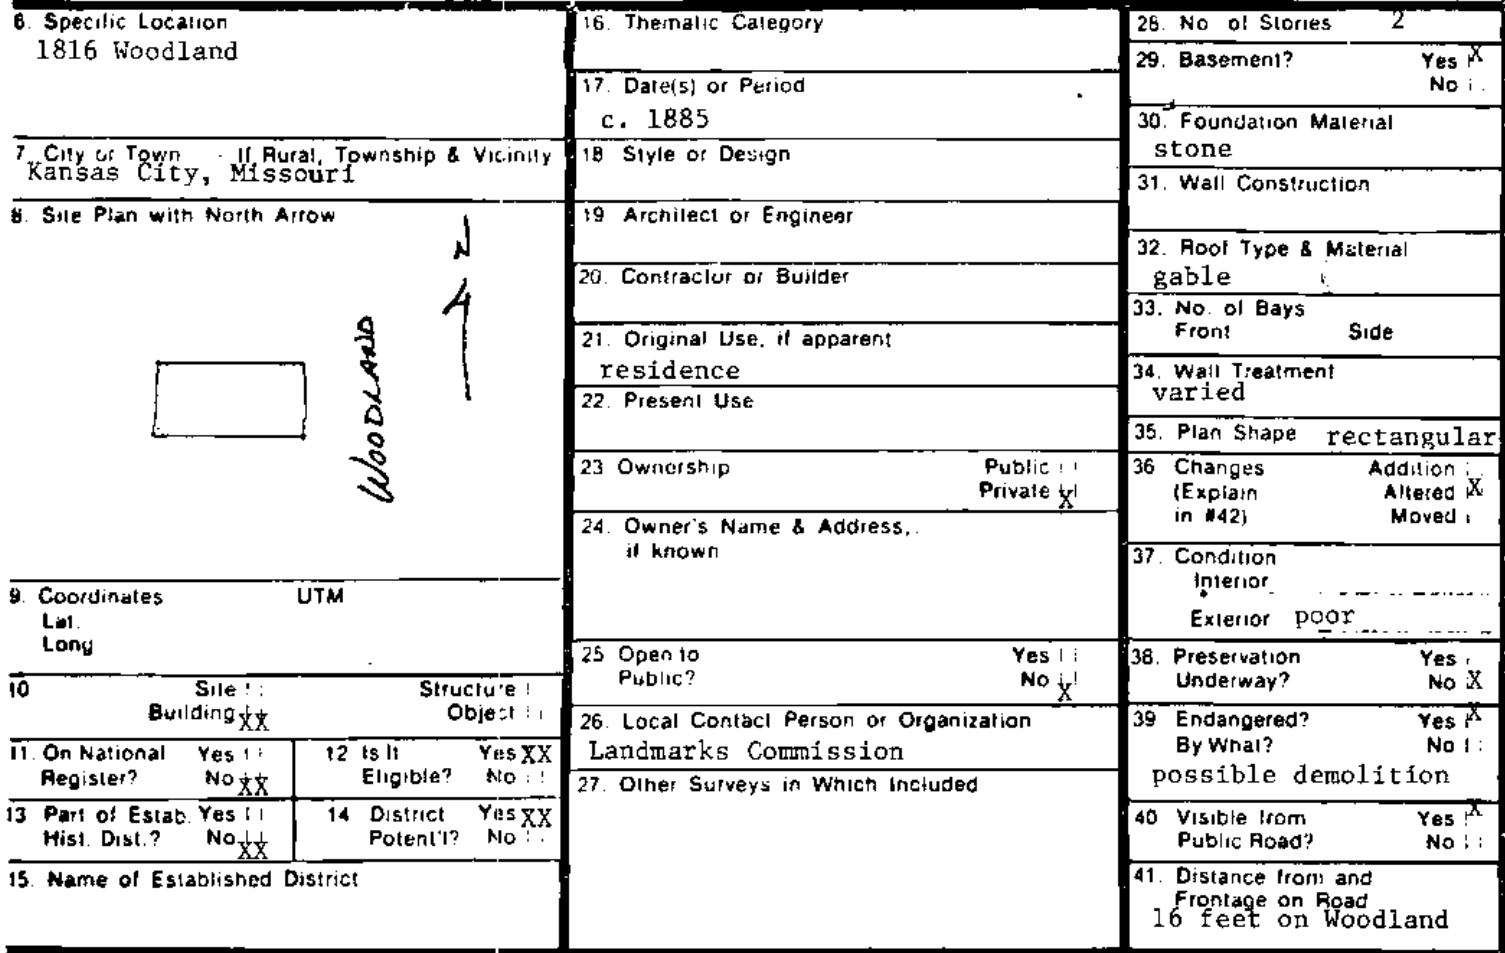 6. Specific Location
1816 Woodland
7. City or Town If Rural, Township & Vicinity
Kansas City, Missouri
8. Site Plan with North Arrow
N
WOODLAND
9. Coordinates UTM
Lat.
Long
10 Site Structure
Building XX Object
11. On National Yes
Register? No XX
12 Is It Yes XX
Eligible? No
13 Part of Estab. Yes
Hist. Dist.? No XX
14 District Yes XX
Potent'l? No
15. Name of Established District
16. Thematic Category
17. Date(s) or Period
c. 1885
18 Style or Design
19 Architect or Engineer
20. Contractor or Builder
21. Original Use, if apparent
residence
22. Present Use
23 Ownership Public
Private X
24. Owner's Name & Address,
if known
25 Open to Yes
Public? No X
26. Local Contact Person or Organization
Landmarks Commission
27. Other Surveys in Which Included
28. No of Stories 2
29. Basement? Yes X
No
30. Foundation Material
stone
31. Wall Construction
32. Roof Type & Material
gable
33. No. of Bays
Front Side
34. Wall Treatment
varied
35. Plan Shape rectangular
36 Changes Addition
(Explain Altered X
in #42) Moved
37. Condition
Interior
Exterior poor
38. Preservation Yes
Underway? No X
39 Endangered? Yes X
By What? No
possible demolition
40 Visible from Yes X
Public Road? No
41. Distance from and
Frontage on Road
16 feet on Woodland